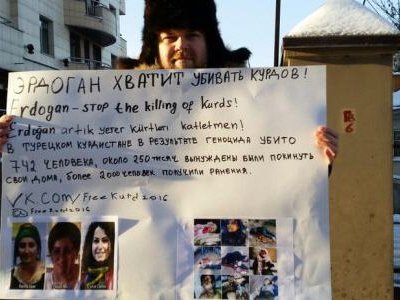 ЭРДОГАН ХВАТИТ УБИВАТЬ КУРДОВ!
Erdogan - STOP the killing of kurds!
Erdogan artik yeter kürtleri katletmen!
В ТУРЕЦКОМ КУРДИСТАНЕ В РЕЗУЛЬТАТЕ ГЕНОЦИДА УБИТО
742 ЧЕЛОВЕКА, ОКОЛО 250 ТЫСЯЧ ВЫНУЖДЕНЫ БЫЛИ ПОКИНУТЬ
СВОИ ДОМА, БОЛЕЕ 2000 ЧЕЛОВЕК ПОЛУЧИЛИ РАНЕНИЯ.
VK.COM/FreeKurd2016
FreeKurd2016